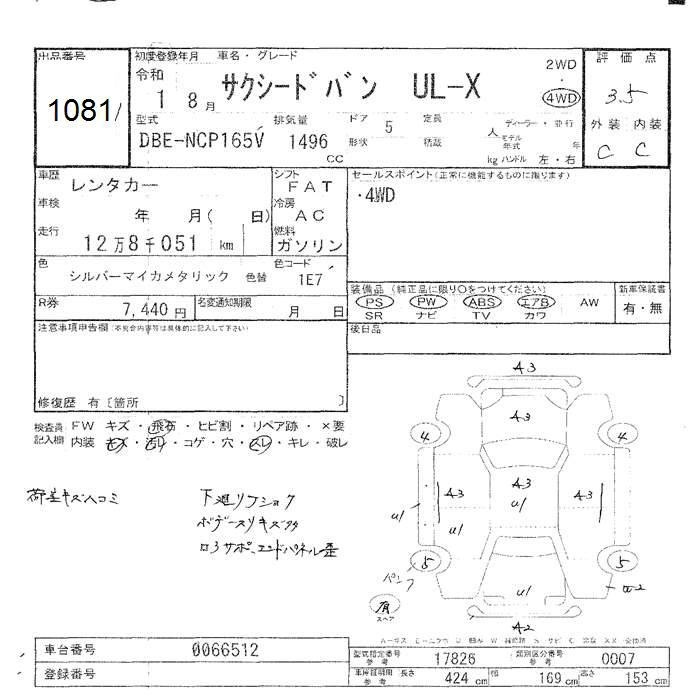 出品番号
1081
初度登録年月 車名・グレード
令和
1 8月
サクシードバン UL-X
2WD
・
4WD
評価点
3.5
外装 内装
C C
型式 排気量 ドア 5 定員
DBE-NCP165V 1496 形状 積載
cc
人 ディーラー・並行
モデル年式 年
kg ハンドル 左・右
車歴 レンタカー
車検 年 月( 日)
走行 12万8千051 km
シフト FAT
冷房 AC
燃料 ガソリン
セールスポイント(正常に機能するものに限ります)
・4WD
色 シルバーマイカメタリック 色替
色コード 1E7
R券 7,440円 名変通知期限 月 日
装備品 (純正品に限り○をつけてください)
PS PW ABS エアB AW
SR ナビ TV カワ
新車保証書
有・無
後日品
注意事項申告欄(不具合内容等は具体的に記入して下さい)
修復歴 有〔箇所 〕
検査員記入欄
FW キズ・飛石・ヒビ割・リペア跡・×要
内装 キズ・汚レ・コゲ・穴・スレ・キレ・破レ
荷室キズヘコミ
下廻リフショク
A3
A3
4 4
A3 A3 A3
U1
U1 U1
5 5
パンク
U1
有
スペア
A2
車台番号 0066512
登録番号
型式指定番号 参考 17826 類別区分番号 参考 0007
車庫証明用 参考 長さ 424 cm 幅 169 cm 高さ 153 cm